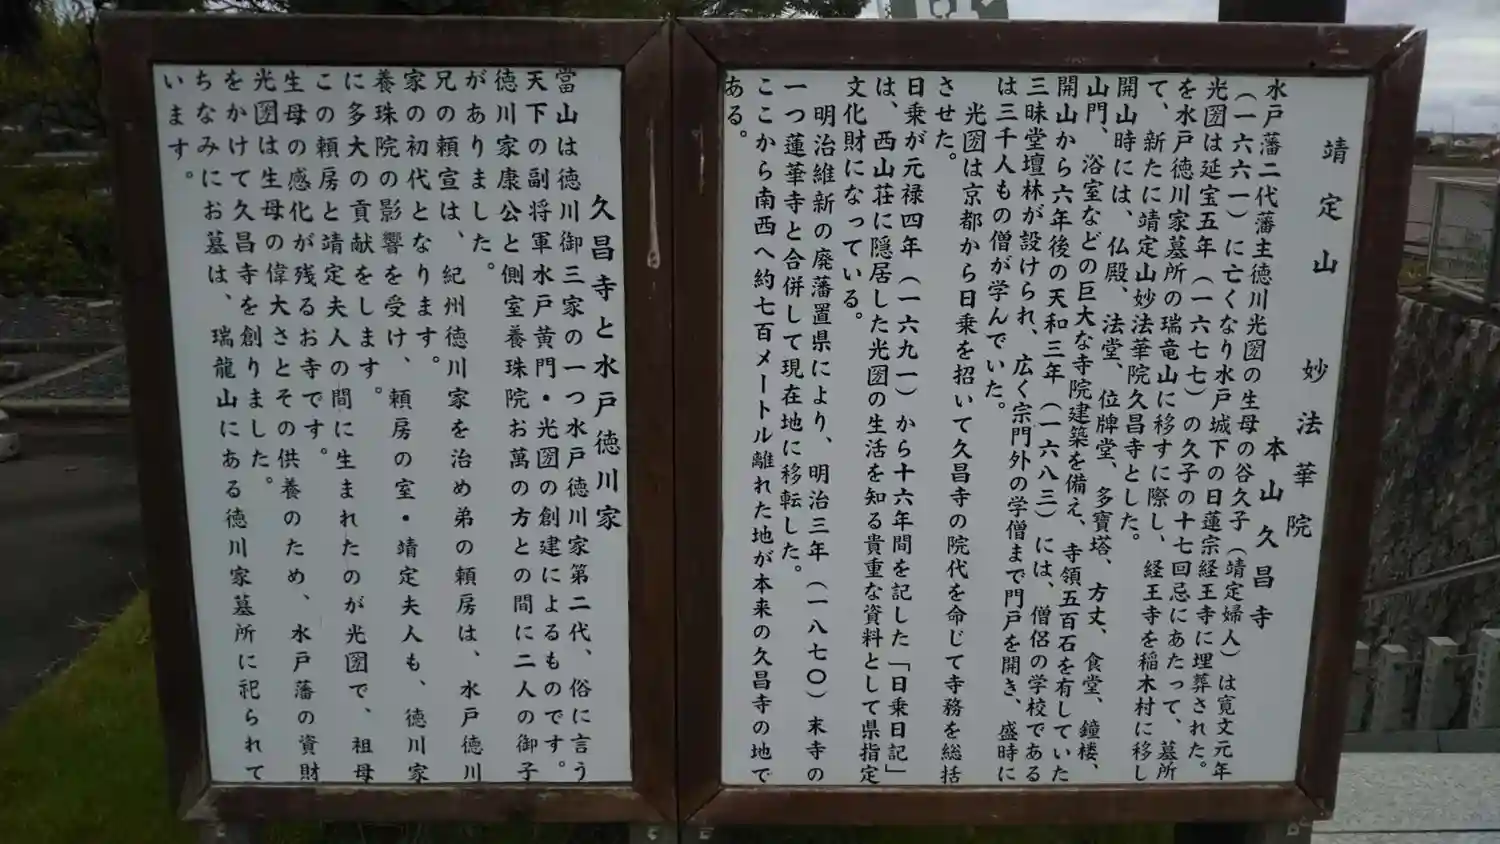 靖定山　妙法華院
本山久昌寺
水戸藩二代藩主徳川光圀の生母の谷久子（靖定婦人）は寛文元年
（一六六一）に亡くなり水戸城下の日蓮宗経王寺に埋葬された。
光圀は延宝五年（一六七七）の久子の十七回忌にあたって、墓所
を水戸徳川家墓所の瑞竜山に移すに際し、経王寺を稲木村に移し
て、新たに靖定山妙法華院久昌寺とした。
開山時には、仏殿、法堂、位牌堂、多寶塔、方丈、食堂、鐘楼、
山門、浴室などの巨大な寺院建築を備え、寺領五百石を有していた
開山から六年後の天和三年（一六八三）には、僧侶の学校である
三昧堂壇林が設けられ、広く宗門外の学僧まで門戸を開き、盛時に
は三千人もの僧が学んでいた。
光圀は京都から日乗を招いて久昌寺の院代を命じて寺務を総括
させた。
日乗が元禄四年（一六九一）から十六年間を記した「日乗日記」
は、西山荘に隠居した光圀の生活を知る貴重な資料として県指定
文化財になっている。
明治維新の廃藩置県により、明治三年（一八七〇）末寺の
一つ蓮華寺と合併して現在地に移転した。
ここから南西へ約七百メートル離れた地が本来の久昌寺の地で
ある。
久昌寺と水戸徳川家
當山は徳川御三家の一つ水戸徳川家第二代、俗に言う
天下の副将軍水戸黄門・光圀の創建によるものです。
徳川家康公と側室養珠院お萬の方との間に二人の御子
がありました。
兄の頼宣は、紀州徳川家を治め弟の頼房は、水戸徳川
家の初代となります。
養珠院の影響を受け、頼房の室・靖定夫人も、徳川家
に多大の貢献をします。
この頼房と靖定夫人の間に生まれたのが光圀で、祖母
生母の感化が残るお寺です。
光圀は生母の偉大さとその供養のため、水戸藩の資財
をかけて久昌寺を創りました。
ちなみにお墓は、瑞龍山にある徳川家墓所に祀られて
います。